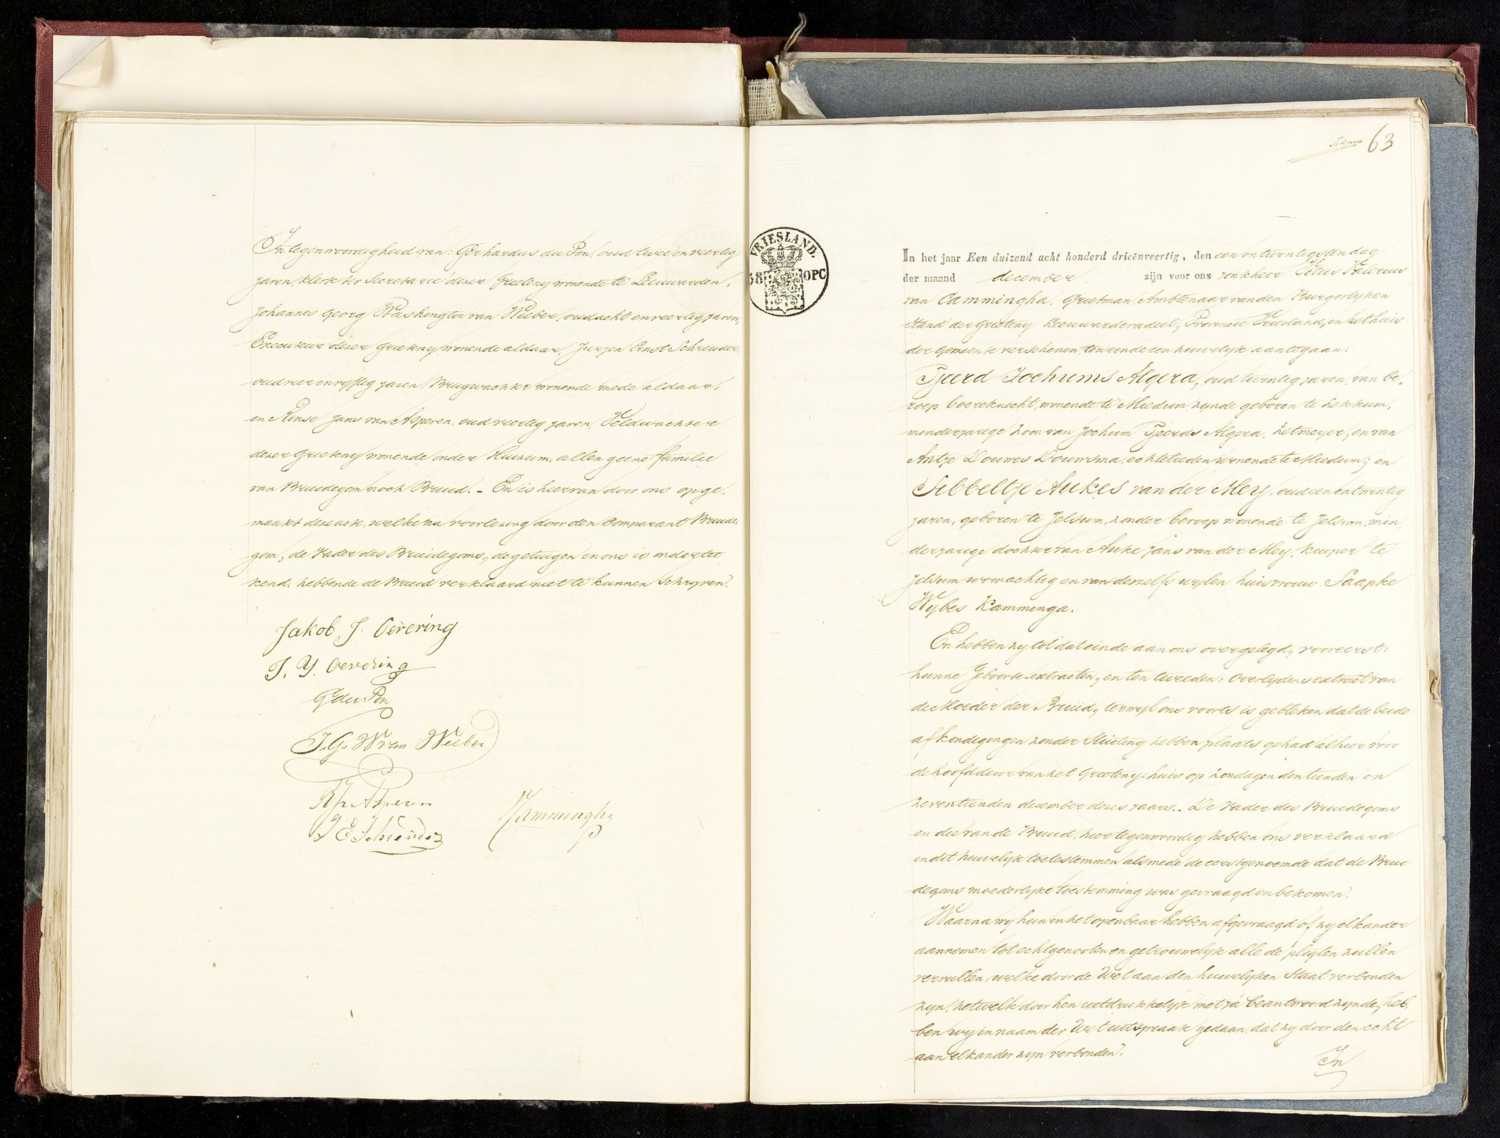 In tegenwoordigheid van: Gerhardus du Pon, oud twee en veertig
jaren, klerk ter Secretarie dezer Grieteny wonende te Leeuwarden,
Johannes Georg Washington van Weeber, oud acht en veertig jaren,
Executeur dezer Grieteny wonende aldaar, Jurjen Ernst Schreuder
oud vier en vyftig jaren, Brugwachter wonende mede aldaar,
en Rinse Jans van Asperen, oud veertig jaren Veldwachter
dezer Grieteny wonende onder Huizum, allen geene familie
van Bruidegom noch Bruid. – En is hiervan door ons opge-
maakt deze acte, welke na voorlezing door den Comparant Bruide-
gom, de Vader des Bruidegoms, de getuigen en ons is ondertee-
kend, hebbende de Bruid verklaard niet te kunnen Schryven.
Jakob J. Oevering
J. Y. Oevering
G du Pon
J. G. W van Weeber
R J v Asperen
J E Schreuder
Cammingha
63
VRIESLAND.
58 OPC
In het jaar Een duizend acht honderd drieënveertig, den een en twintigsten dag
der maand december zijn voor ons Jonkheer Vitus Valerius
van Cammingha, Grietman Ambtenaar van den Burgerlyken
Stand der Grieteny Leeuwarderadeel, Provincie Friesland, en het huis
der Gemeente verschenen, ten einde een huwelijk aan te gaan:
Tjeerd Jochums Algra, oud twintig jaren, van be-
roep boereknecht, wonende te Miedum zynde geboren te Lekkum,
minderjarige zoon van Jochum Tjeerds Algra, huismeyer, en van
Antje Douwes Douwsma, echtelieden wonende te Miedum; en
Sibbeltje Aukes van der Mey, oud een en twintig
jaren, geboren te Jelsum, zonder beroep wonende te Jelsum, min-
derjarige dochter van Auke Jans van der Mey, kuiper te
Jelsum woonachtig en van deszelfs wylen huisvrouw Saapke
Wybes Kamminga.
En hebben zy tot dat einde aan ons overgelegd, vooreerst:
hunne Geboorte-extracten, en ten tweeden: Overlydens extract van
de Moeder der Bruid, terwyl ons voorts is gebleken dat de beide
afkondigingen zonder Stuiting hebben plaats gehad alhier voor
de hoofddeur van het Grieteny-huis op Zondagen den tienden en
zeventienden december dezes jaars. – De Vader des Bruidegoms
en die van de Bruid, hier tegenwoordig hebben ons verklaard
in dit huwelijk toe te stemmen alsmede de eerstgenoemde dat de Brui-
degoms moederlijke toestemming was gevraagd en bekomen.
Waarna wy hun in het openbaar hebben afgevraagd of zy elkander
aannemen tot echtgenooten en getrouwelyk alle de pligten zullen
vervullen, welke door de Wet aan den huwelyken Staat verbonden
zyn, hetwelk door hen uitdrukkelyk met ja beantwoord zynde, heb-
ben wy in naam der Wet uitspraak gedaan, dat zy door den echt
aan elkander zyn verbonden.
In